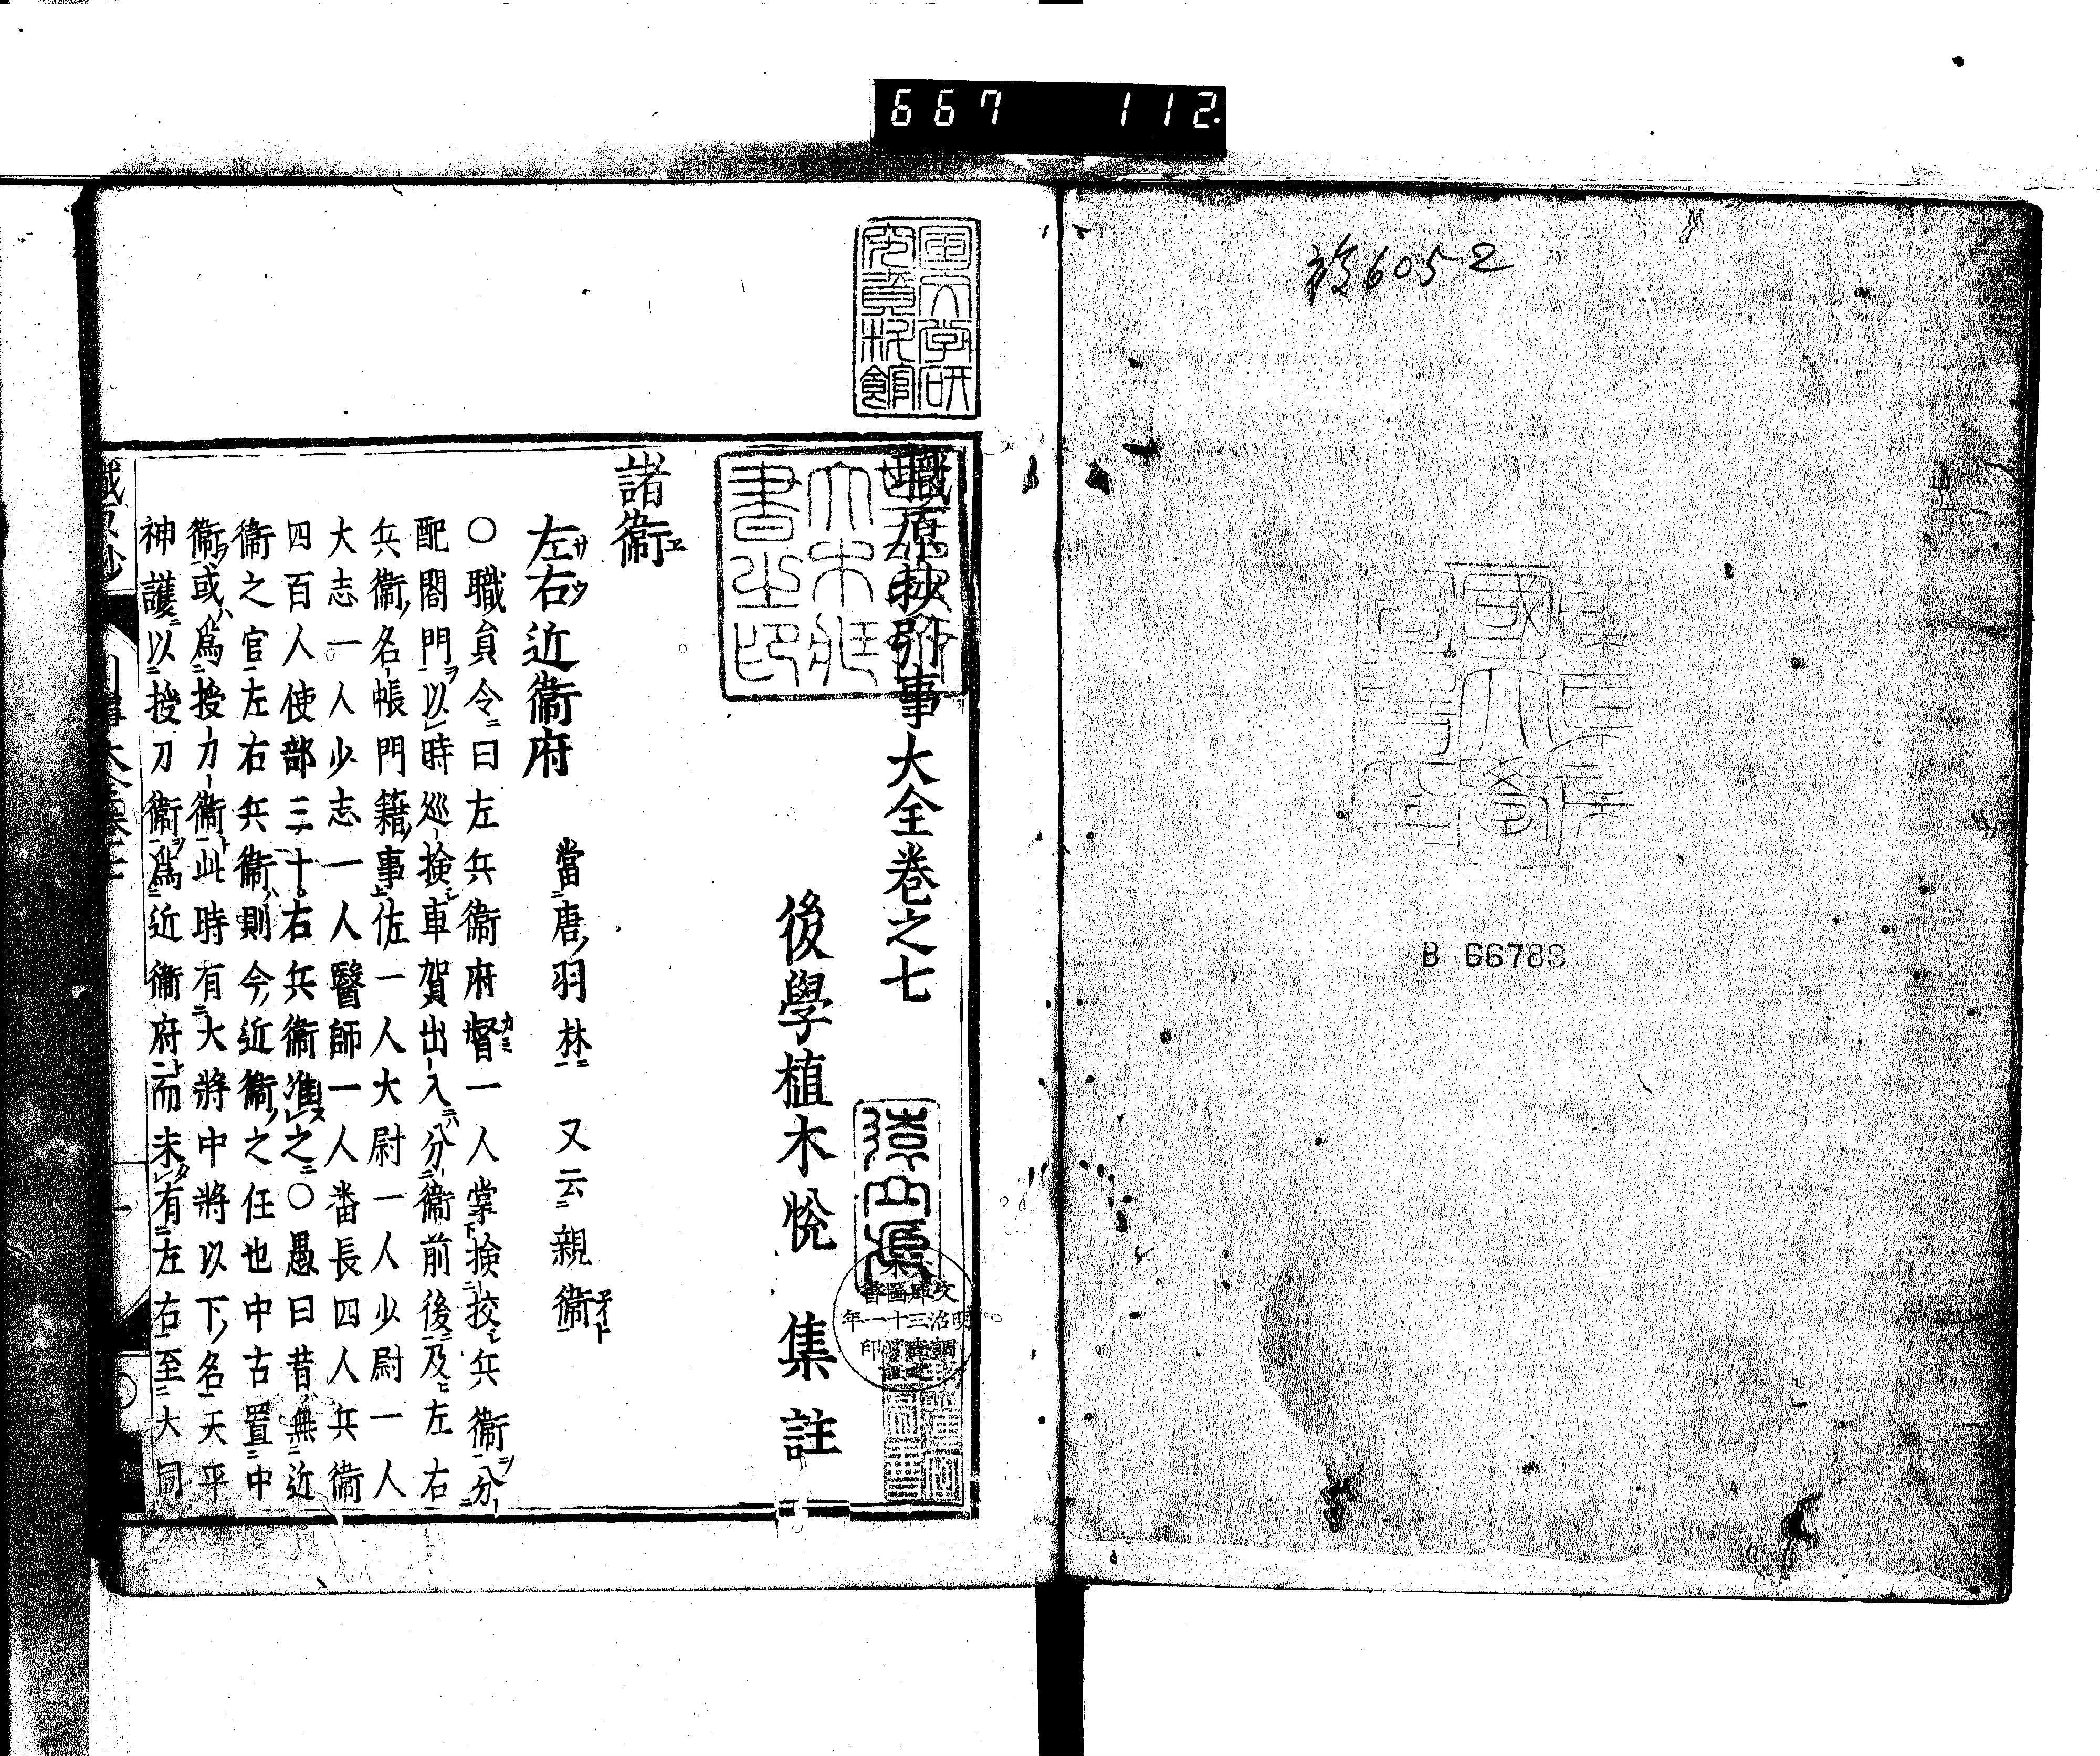 667 112
6052
B 66788
職原抄引事大全巻之七
後學植木悦 集註
諸衞
左右近衞府 當唐羽林 又云親衞
〇職員令曰左兵衞府督一人掌撿挍兵衞分
配閤門以時巡撿車賀出入分衞前後及左右
兵衞名帳門籍事佐一人大尉一人少尉一人
大志一人少志一人醫師一人番長四人兵衞
四百人使部三十右兵衞准之〇愚曰昔無近
衞之官左右兵衞則今近衞之任也中古置中
衞或爲授刀衞此時有大將中將以下名天平
神護以授刀衞爲近衞府而未有左右至大同